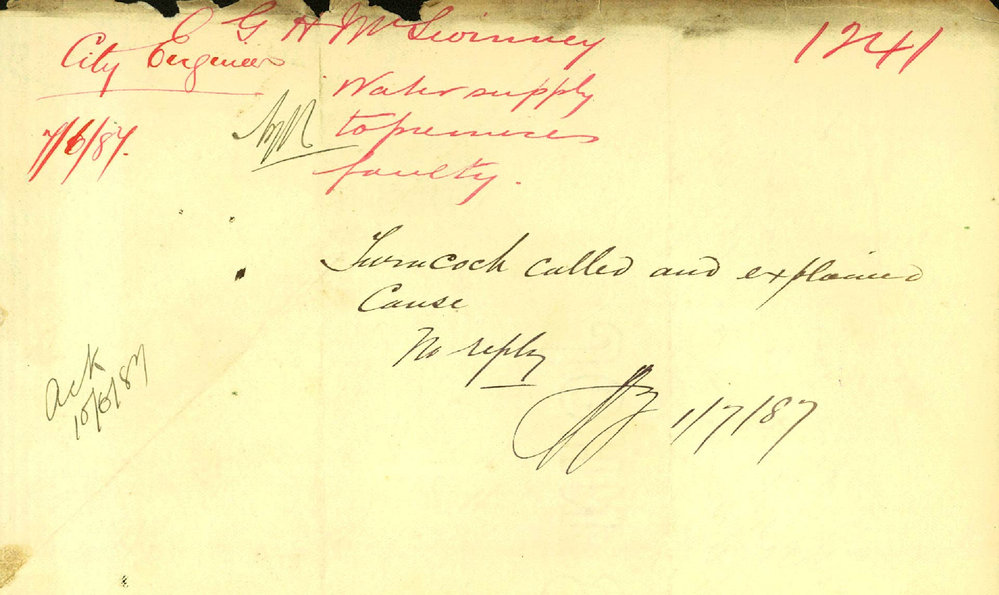 E
G H McSwinney
1241
City Engineer
Water supply
to premises
faulty.
7/6/87.
Turncock called and explained
Cause
No reply
1/7/87
Ack
10/6/87